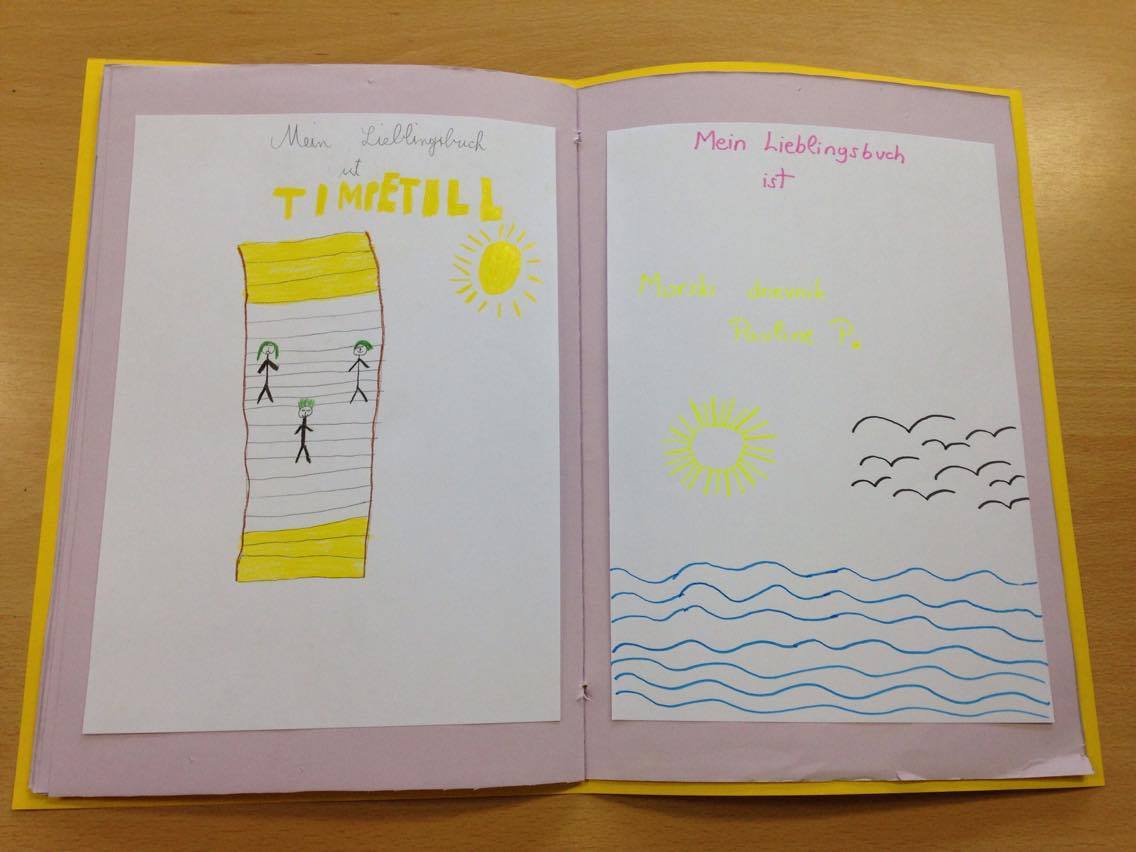 Mein Lieblingsbuch
ist
TIMPETILL
Mein Lieblingsbuch
ist
Morski dnevnik
Pauline P.